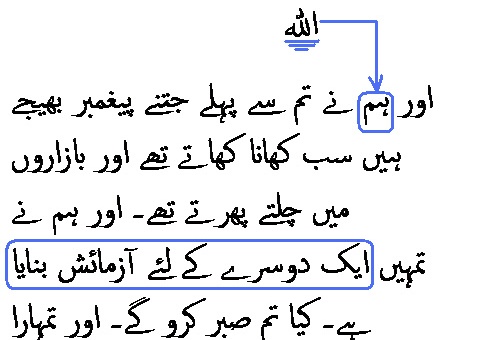 اللہ
اور ہم نے تم سے پہلے جتنے پیغمبر بھیجے
ہیں سب کھانا کھاتے تھے اور بازاروں
میں چلتے پھرتے تھے۔ اور ہم نے
تمہیں ایک دوسرے کے لئے آزمائش بنایا
ہے۔ کیا تم صبر کرو گے۔ اور تمہارا